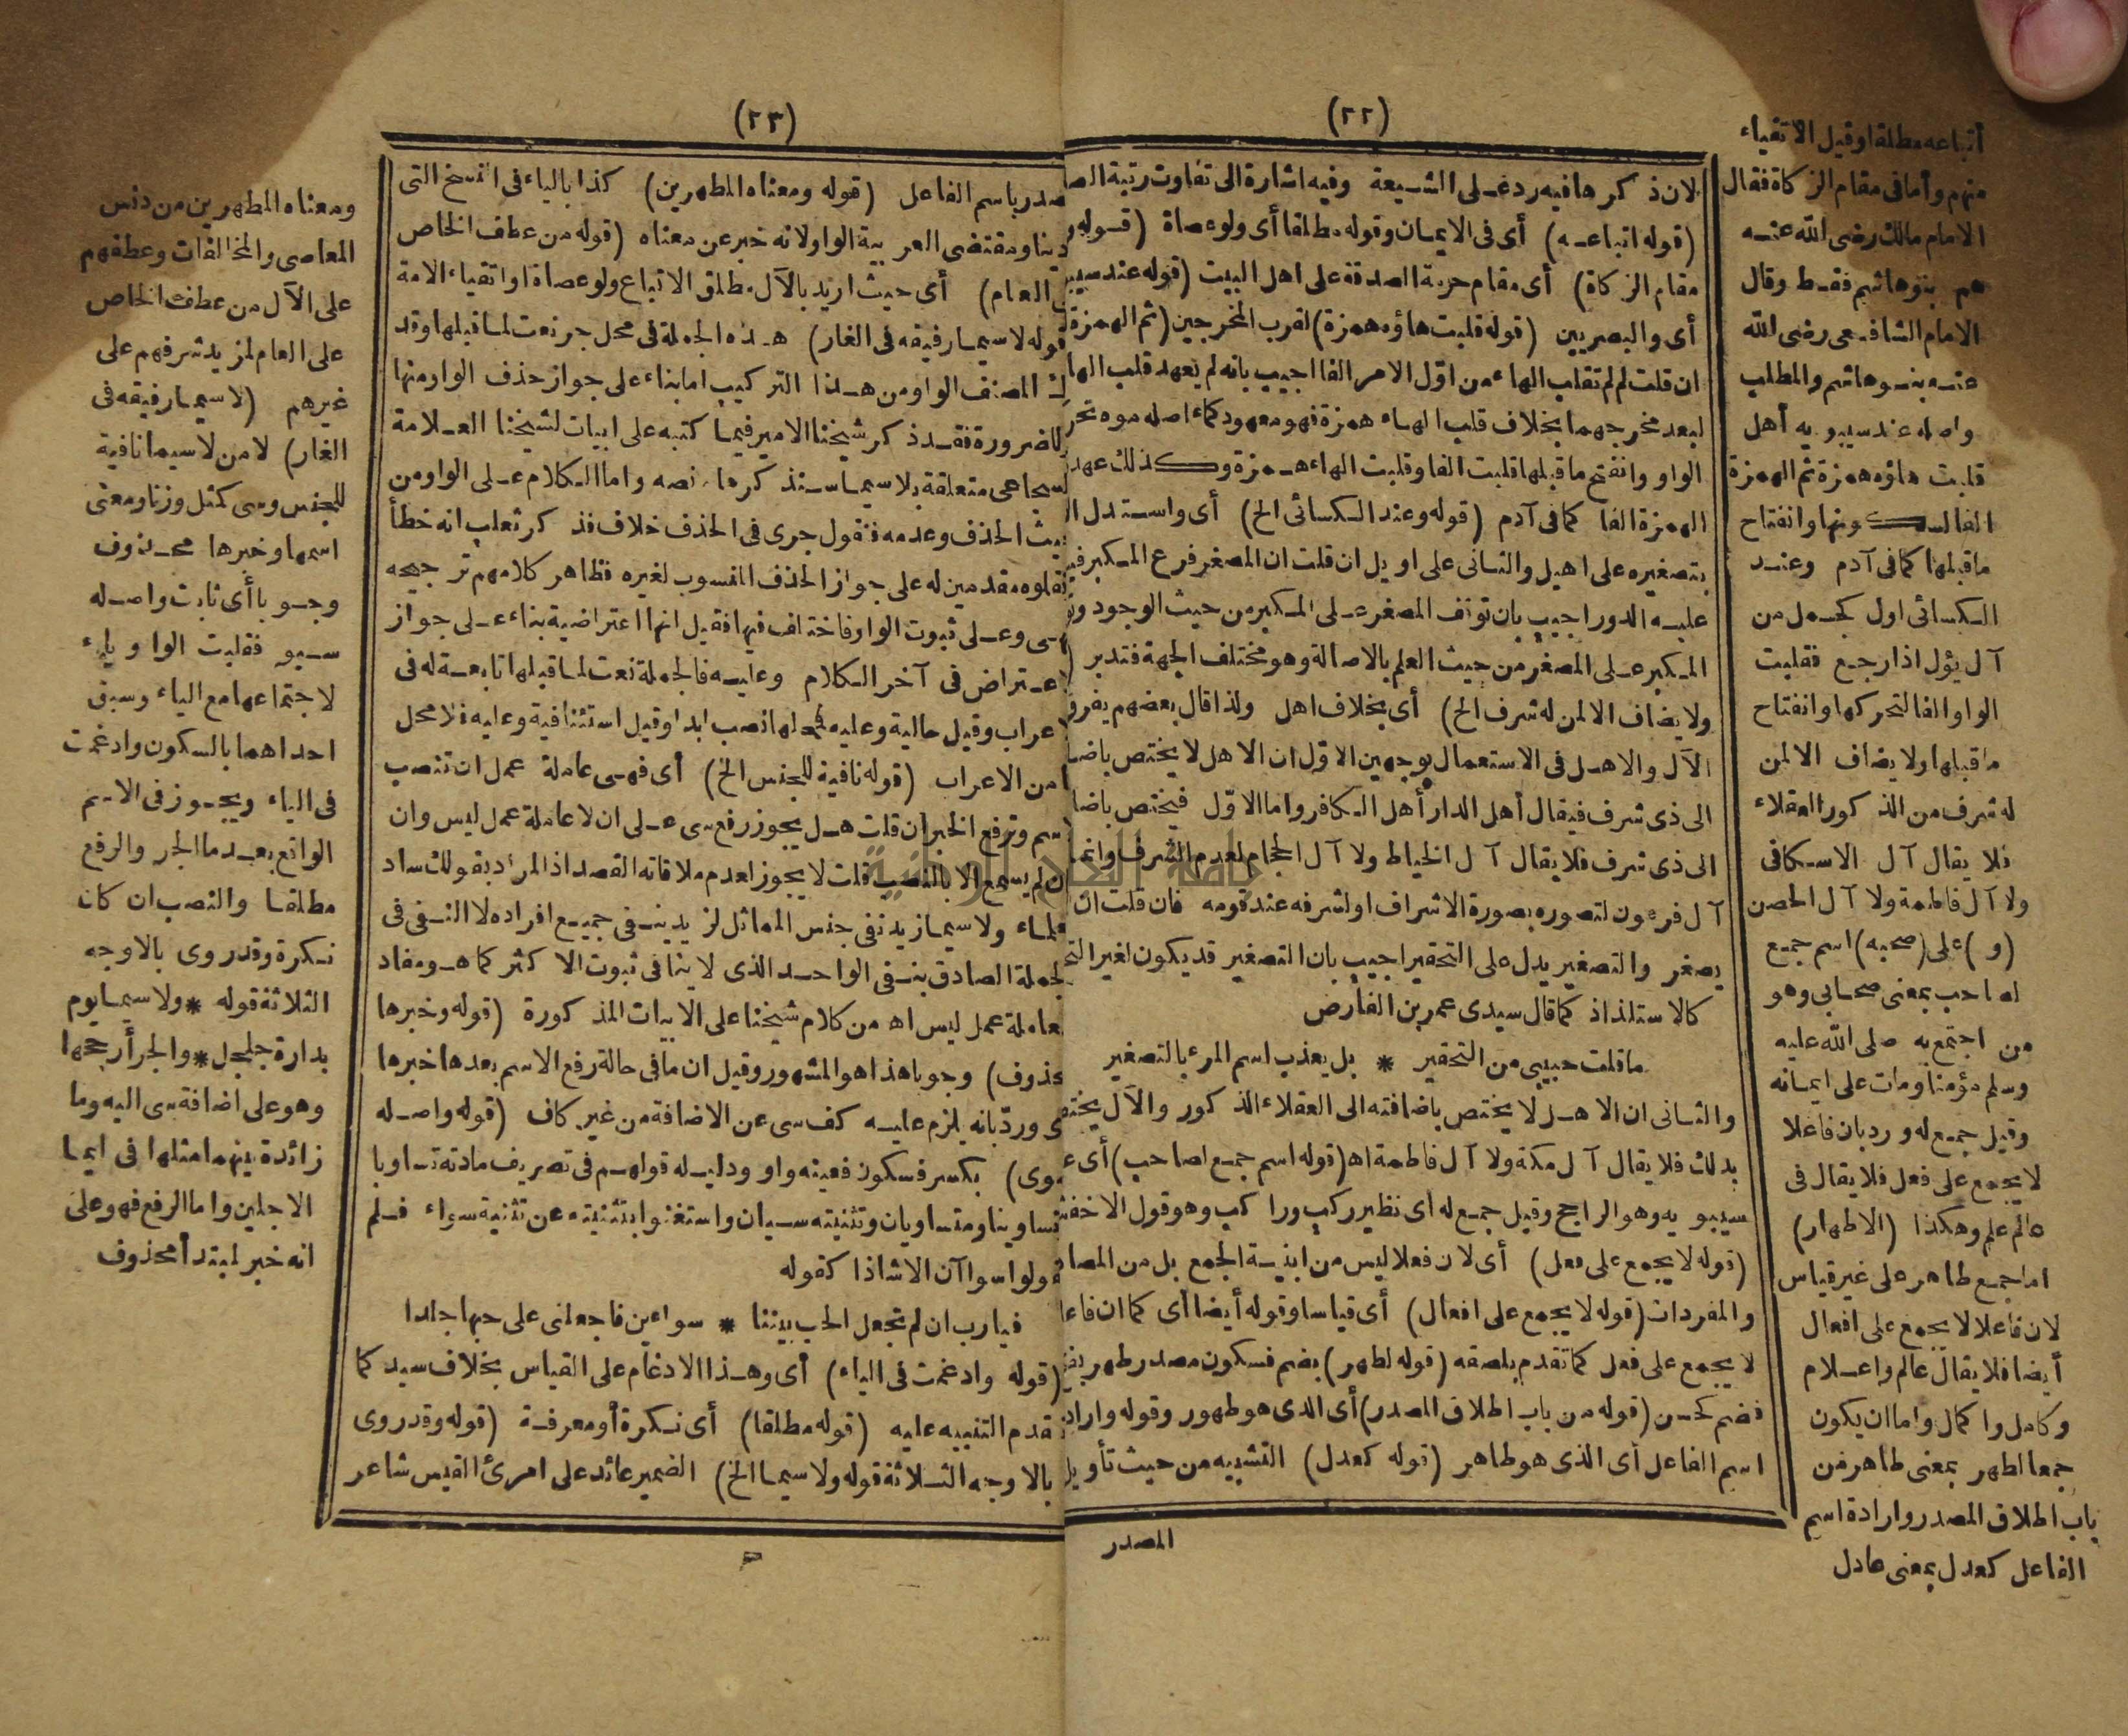 (٢٢)
أتباعه مطلقا وقيل الاتقياء
منهم وأما فى مقام الزكاة فقال
الامام مالك رضى الله عنه
هم بنو هاشم فقط وقال
الامام الشافعى رضى الله
عنه بنو هاشم والمطلب
واصله عند سيبويه أهل
قلبت هاؤه همزة ثم الهمزة
الفا لسكونها وانفتاح
ماقبلها كما فى آدم وعند
الكسائى اول كجمل من
آل يؤل اذا رجع فقلبت
الواو الفا لتحركها وانفتاح
ماقبلها ولا يضاف الا لمن
له شرف من الذكور العقلاء
فلا يقال آل الاسكافى
ولا آل فاطمة ولا آل الحصن
(و) على (صحبه) اسم جمع
لصاحب بمعنى صحابى وهو
من اجتمع به صلى الله عليه
وسلم مؤمنا ومات على ايمانه
وقيل جمع له ورد بان فاعلا
لا يجمع على فعل فلا يقال فى
عالم علم وهكذا (الاطهار)
اما جمع طاهر على غير قياس
لان فاعلا لا يجمع على افعال
أيضا فلا يقال عالم واعلام
وكامل واكمال واما ان يكون
جمعا لطهر بمعنى طاهر من
باب اطلاق المصدر وارادة اسم
الفاعل كعدل بمعنى عادل
لان ذكرها فيه رد على الشيعة وفيه اشارة الى تفاوت رتبة
(قوله اتباعه) أى فى الايمان وقوله مطلقا أى ولو عصاة
مقام الزكاة) أى مقام حرمة الصدقة على اهل البيت (قوله عند
أى والبصريين (قوله قلبت هاؤه همزة) لقرب المخرجين (ثم الهمزة
ان قلت لم لم تقلب الهاء من اوّل الامر الفا اجيب بانه لم يعهد قلب
لبعد مخرجهما بخلاف قلب الهاء همزة فهو معهود كماء اصله موه
الواو وانفتح ماقبلها قلبت الفا وقلبت الهاء همزة وكذلك عهد
الهمزة الفا كما فى آدم (قوله وعند الكسائى الخ) أى واستدل
بتصغيره على اهيل والثانى على اويل ان قلت ان المصغر فرع المكبر
عليه الدور اجيب بان توقف المصغر على المكبر من حيث الوجود
المكبر على المصغر من حيث العلم بالاصالة وهو مختلف الجهة فتدبر
ولا يضاف الا لمن له شرف الخ) أى بخلاف اهل ولذا قال بعضهم
الآل والاهل فى الاستعمال بوجهين الاوّل ان الاهل لا يختص
الى ذى شرف فيقال أهل الدار أهل الكافر واما الاوّل فيختص
الى ذى شرف فلا يقال آل الخياط ولا آل الحجام لعدم الشرف وانما
آل فرعون لتصوره بصورة الاشراف او لشرفه عند قومه فان قلت ان
يصغر والتصغير يدل على التحقير اجيب بان التصغير قد يكون لغير
كالاستلذاذ كما قال سيدى عمر بن الفارض
ماقلت حبيبى من التحقير * بل يعذب اسم المرء بالتصغير
والثانى ان الاهل لا يختص باضافته الى العقلاء الذكور والآل
بذلك فلا يقال آل مكة ولا آل فاطمة اه (قوله اسم جمع لصاحب) أى
سيبويه وهو الراجح وقيل جمع له اى نظير ركب وراكب وهو قول
(قوله لا يجمع على فعل) أى لان فعلا ليس من ابنية الجمع بل من
والمفردات (قوله لا يجمع على افعال) أى قياسا وقوله أيضا أى كما ان
لا يجمع على فعل كما تقدم بلصقه (قوله لطهر) بضم فسكون مصدر طهر
فضم كحسن (قوله من باب اطلاق المصدر) أى الذى هو طهور وقوله
اسم الفاعل أى الذى هو طاهر (قوله كعدل) التشبيه من حيث تأويل
المصدر
(٢٣)
باسم الفاعل (قوله ومعناه المطهرين) كذا بالياء فى النسخ التى
ومقتضى العربية الواو لانه خبر عن معناه (قوله من عطف الخاص
العام) أى حيث اريد بالآل مطلق الاتباع ولو عصاة او اتقياء الامة
لاسيما رفيقه فى الغار) هذه الجملة فى محل جر نعت لما قبلها وقد
المصنف الواو من هذا التركيب اما بناء على جواز حذف الواو منها
للضرورة فقد ذكر شيخنا الامير فيما كتبه على ابيات لشيخنا العلامة
متعلقة بلاسيما ستذكر ما نصه واما الكلام على الواو من
الحذف وعدمه فنقول جرى فى الحذف خلاف فذكر ثعلب انه خطأ
مقدمين له على جواز الحذف المنسوب لغيره فظاهر كلامهم ترجيحه
وعلى ثبوت الواو فاختلف فيها فقيل انها اعتراضية بناء على جواز
فى آخر الكلام وعليه فالجملة نعت لما قبلها تابعة له فى
وقيل حالية وعليه فمحلها نصب ابدا وقيل استئنافية وعليه فلا محل
من الاعراب (قوله نافية للجنس الخ) أى فهى عاملة عمل ان تنصب
وترفع الخبر ان قلت هل يجوز رفع سى على ان لا عاملة عمل ليس وان
لم يسمع الا بالنصب قلت لا يجوز لعدم ملاقاته القصد اذ المراد بقولك ساد
ولاسيما زيد نفى جنس المماثل لزيد ينفى جميع افراده لا النفى فى
الصادق بنفى الواحد الذى لا ينافى ثبوت الاكثر كما هو مفاد
عمل ليس اه من كلام شيخنا على الابيات المذكورة (قوله وخبرها
وجوبا هذا هو المشهور وقيل ان ما فى حالة رفع الاسم بعدها خبرها
وردّ بانه يلزم عليه كف سى عن الاضافة من غير كاف (قوله واصله
بكسر فسكون فعينه واو ودليله قولهم فى تصريف مادته تساويا
ومتساويان وتثنيته سيان واستغنوا بتثنيته عن تثنية سواء فلم
يقولوا سواآن الا شاذا كقوله
فيارب ان لم تجعل الحب بيننا * سواءين فاجعلنى على حبها جلدا
(قوله وادغمت فى الياء) أى وهذا الادغام على القياس بخلاف سيد كما
تقدم التنبيه عليه (قوله مطلقا) أى نكرة أو معرفة (قوله وقد روى
بالاوجه الثلاثة قوله ولاسيما الخ) الضمير عائد على امرئ القيس شاعر
ومعناه المطهرين من دنس
المعاصى والمخالفات وعطفهم
على الآل من عطف الخاص
على العام لمزيد شرفهم على
غيرهم (لاسيما رفيقه فى
الغار) لا من لاسيما نافية
للجنس وسى كمثل وزنا ومعنى
اسمها وخبرها محذوف
وجوبا أى ثابت واصله
سيو فقلبت الواو ياء
لاجتماعها مع الياء وسبق
احداهما بالسكون وادغمت
فى الياء ويجوز فى الاسم
الواقع بعد ما الجر والرفع
مطلقا والنصب ان كان
نكرة وقد روى بالاوجه
الثلاثة قوله * ولاسيما يوم
بدارة جلجل * والجر أرجحها
وهو على اضافة سى اليه وما
زائدة بينهما مثلها فى ايما
الاجلين واما الرفع فهو على
انه خبر لمبتدأ محذوف